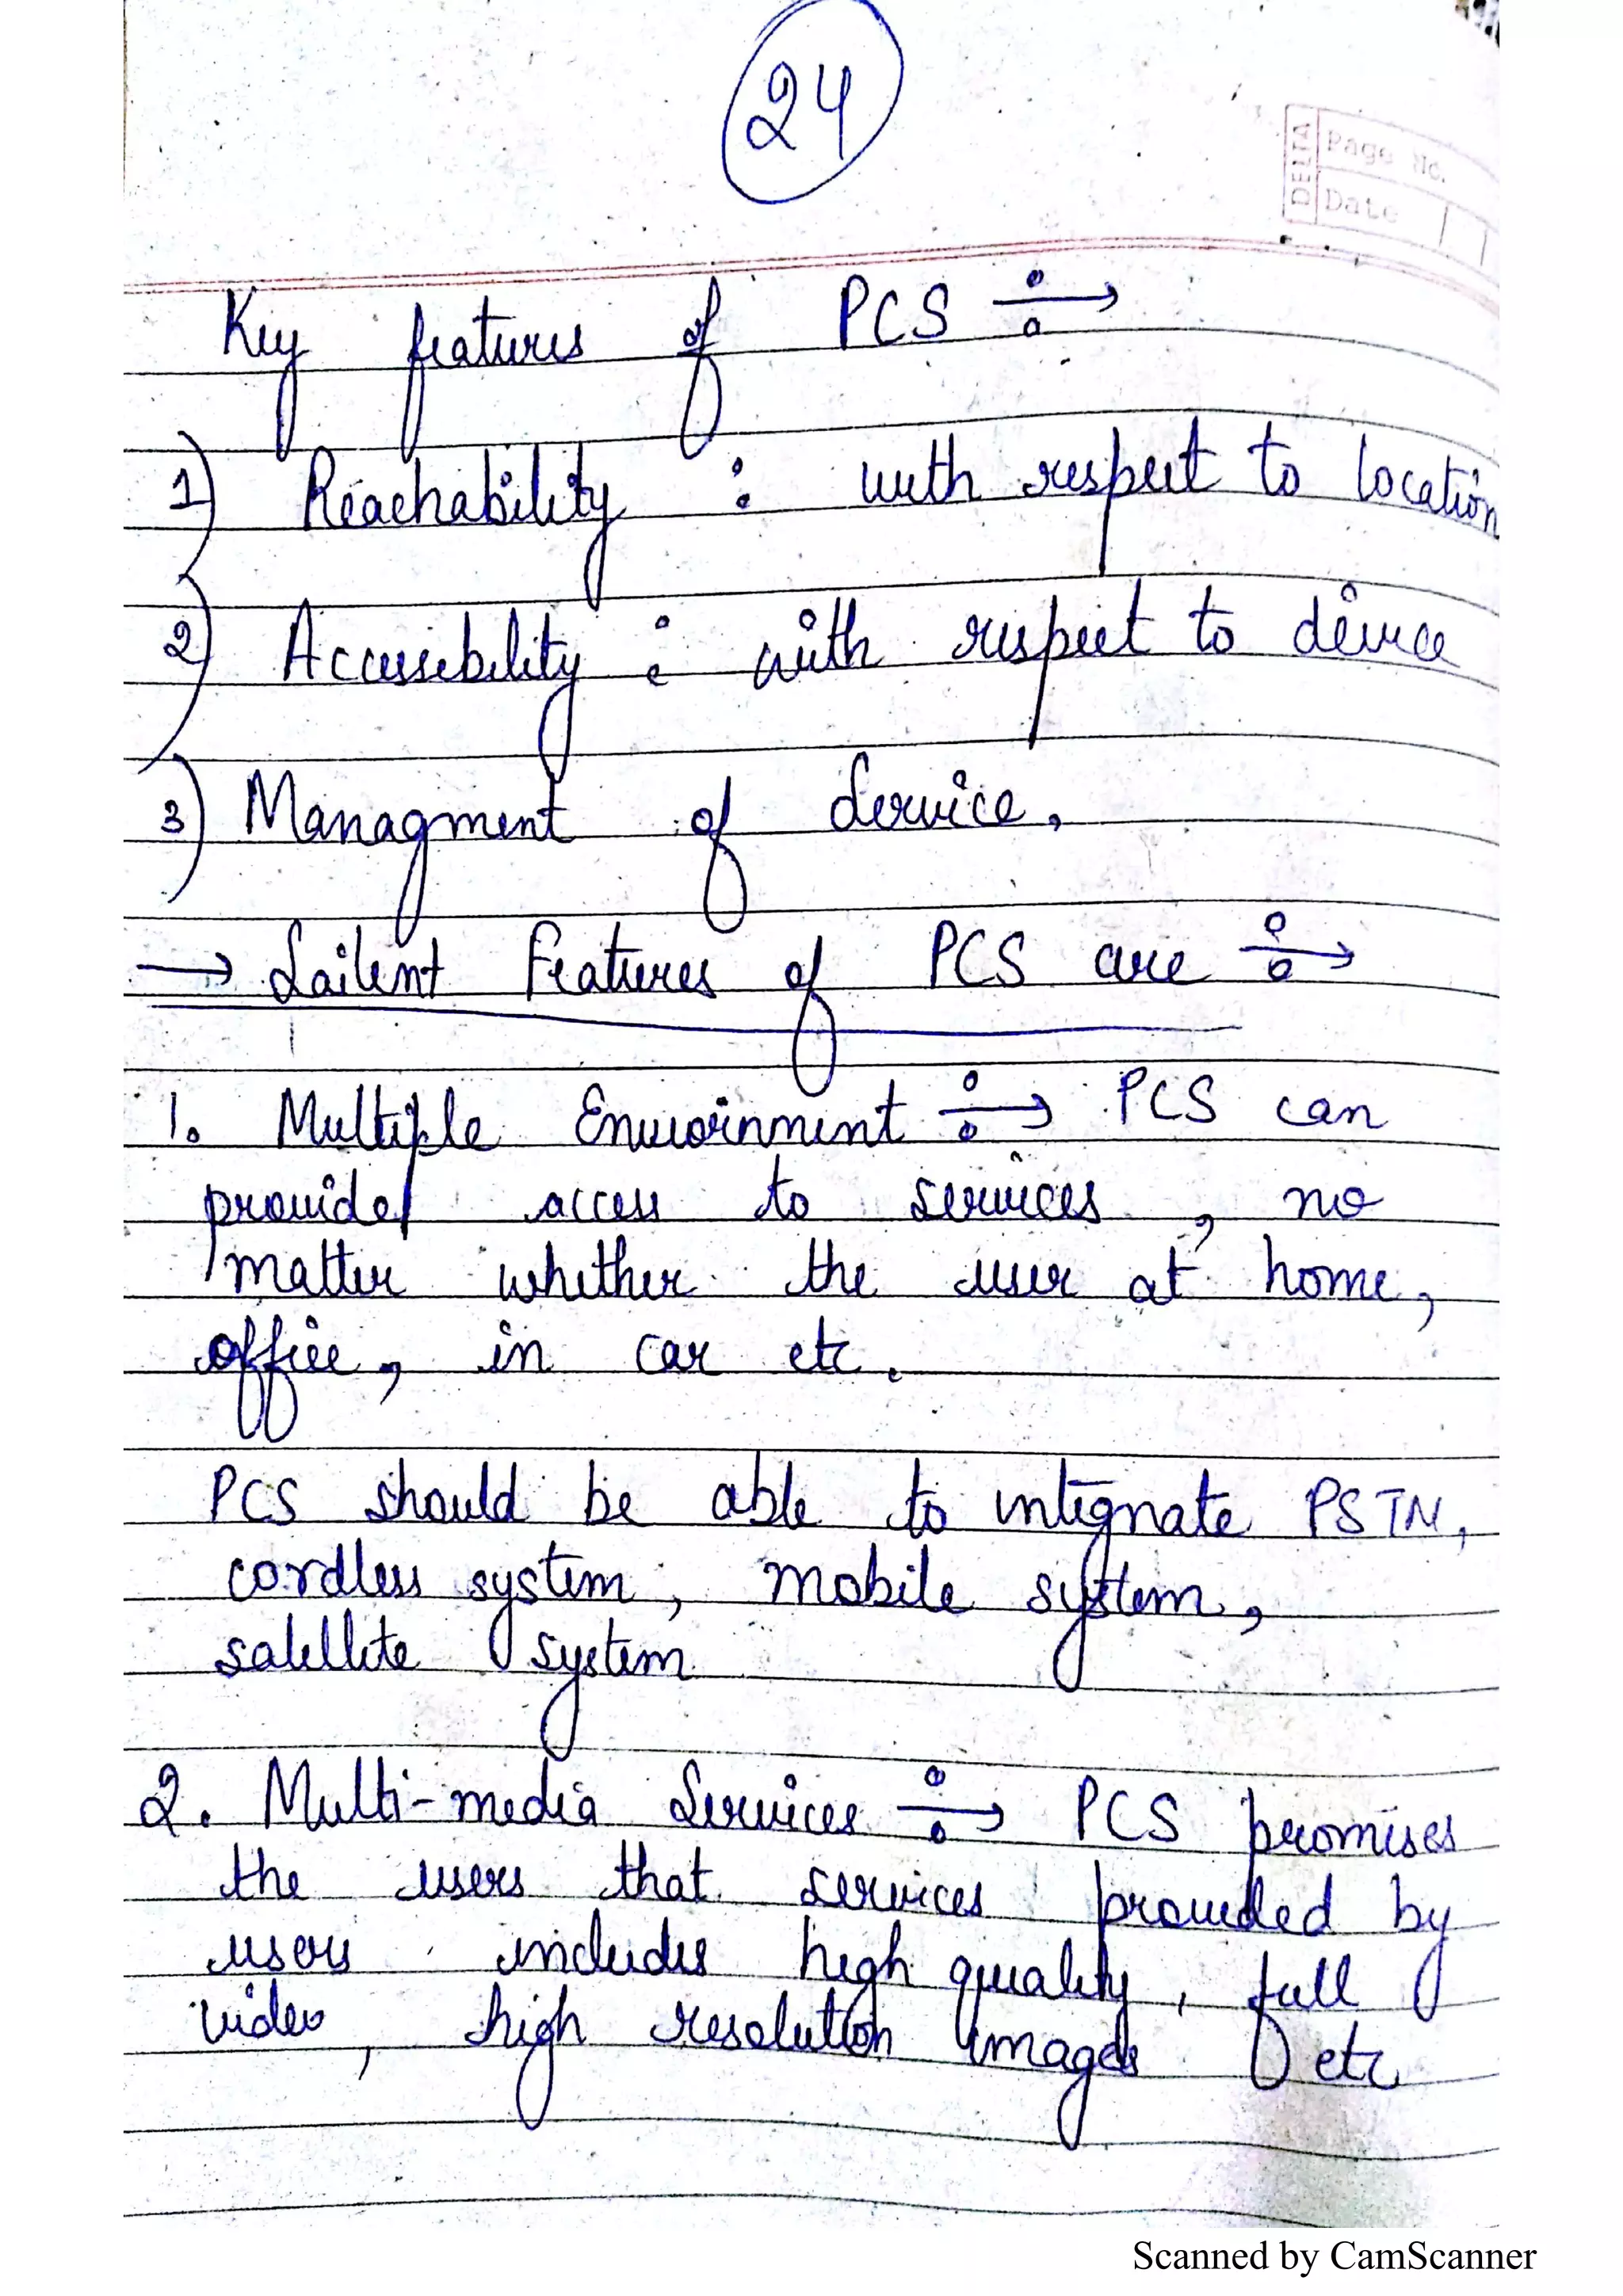 24
DELTA
Page No.
Date
Key features of PCS ÷→
1) Reachability : with respect to location
2) Accessibility : with respect to device
3) Managment of Service.
→ Sailent Features of PCS are ÷→
1. Multiple Enviornment ÷→ PCS can
provide access to services, no
matter whether the user at home,
office, in car etc.
PCS should be able to integrate PSTN,
cordless system, mobile system,
satellite system
2. Multi-media Services ÷→ PCS promises
the users that services provided by
users includes high quality, full
video, high resolution images etc
Scanned by CamScanner